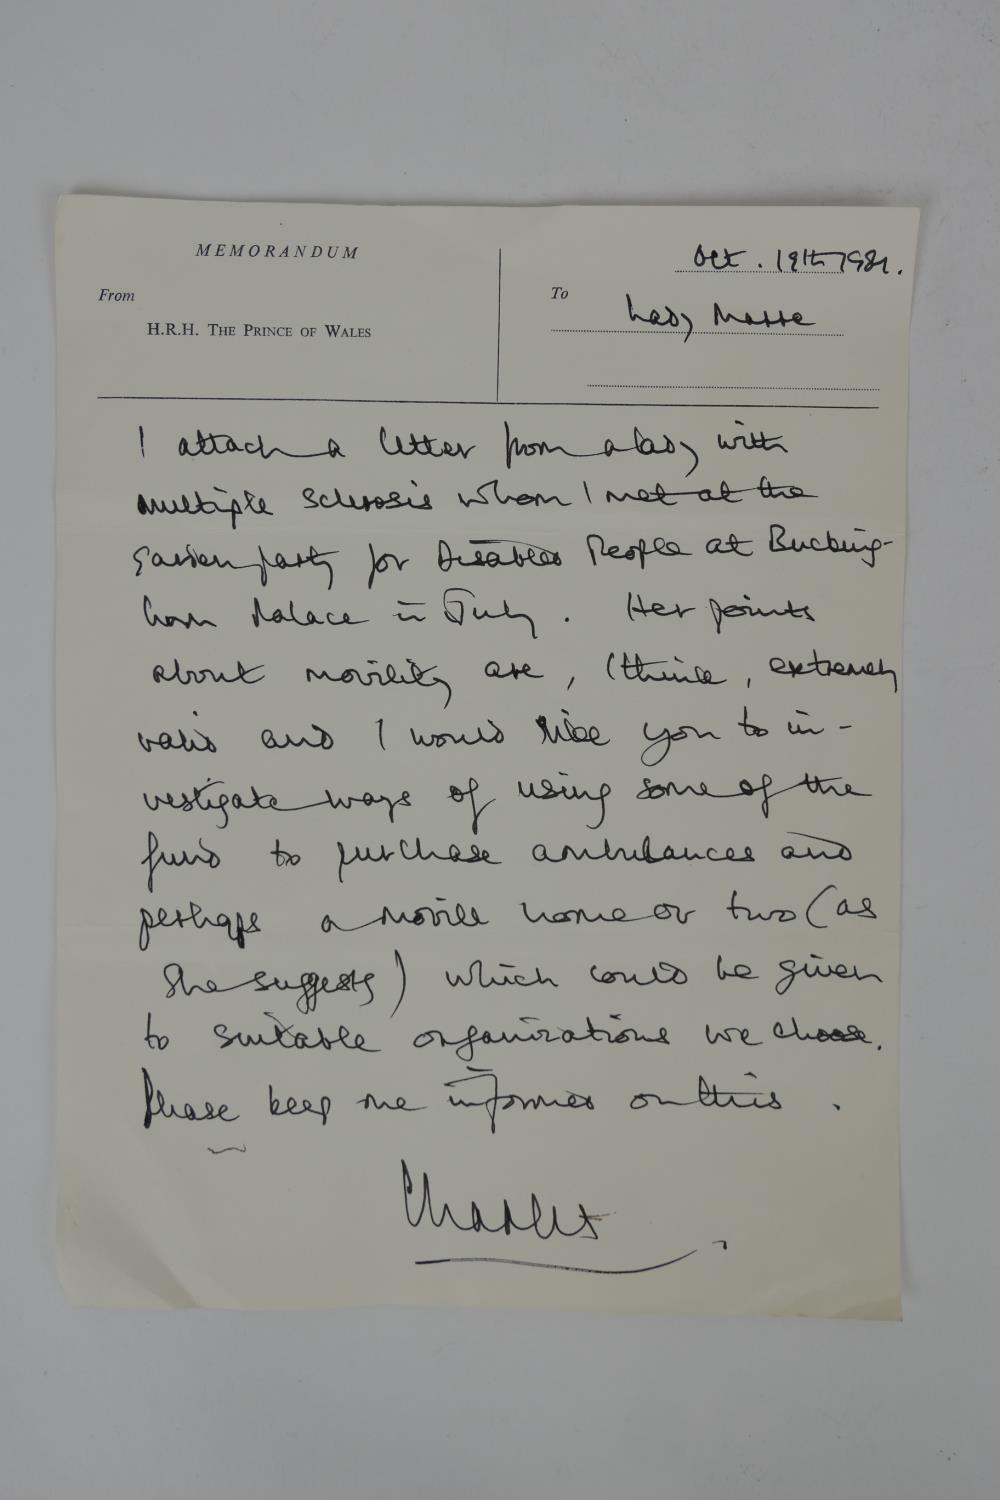 MEMORANDUM
From
H.R.H. THE PRINCE OF WALES
Oct. 19th 1981.
To
Lady
I attach a letter from a lady with
multiple sclerosis whom I met at the
garden party for Disabled People at Bucking-
ham Palace in July. Her points
about mobility are, I think, extremely
valid and I would like you to in-
vestigate ways of using some of the
fund to purchase ambulances and
perhaps a mobile home or two (as
she suggests) which could be given
to suitable organizations we choose.
Please keep me informed on this.
Charles